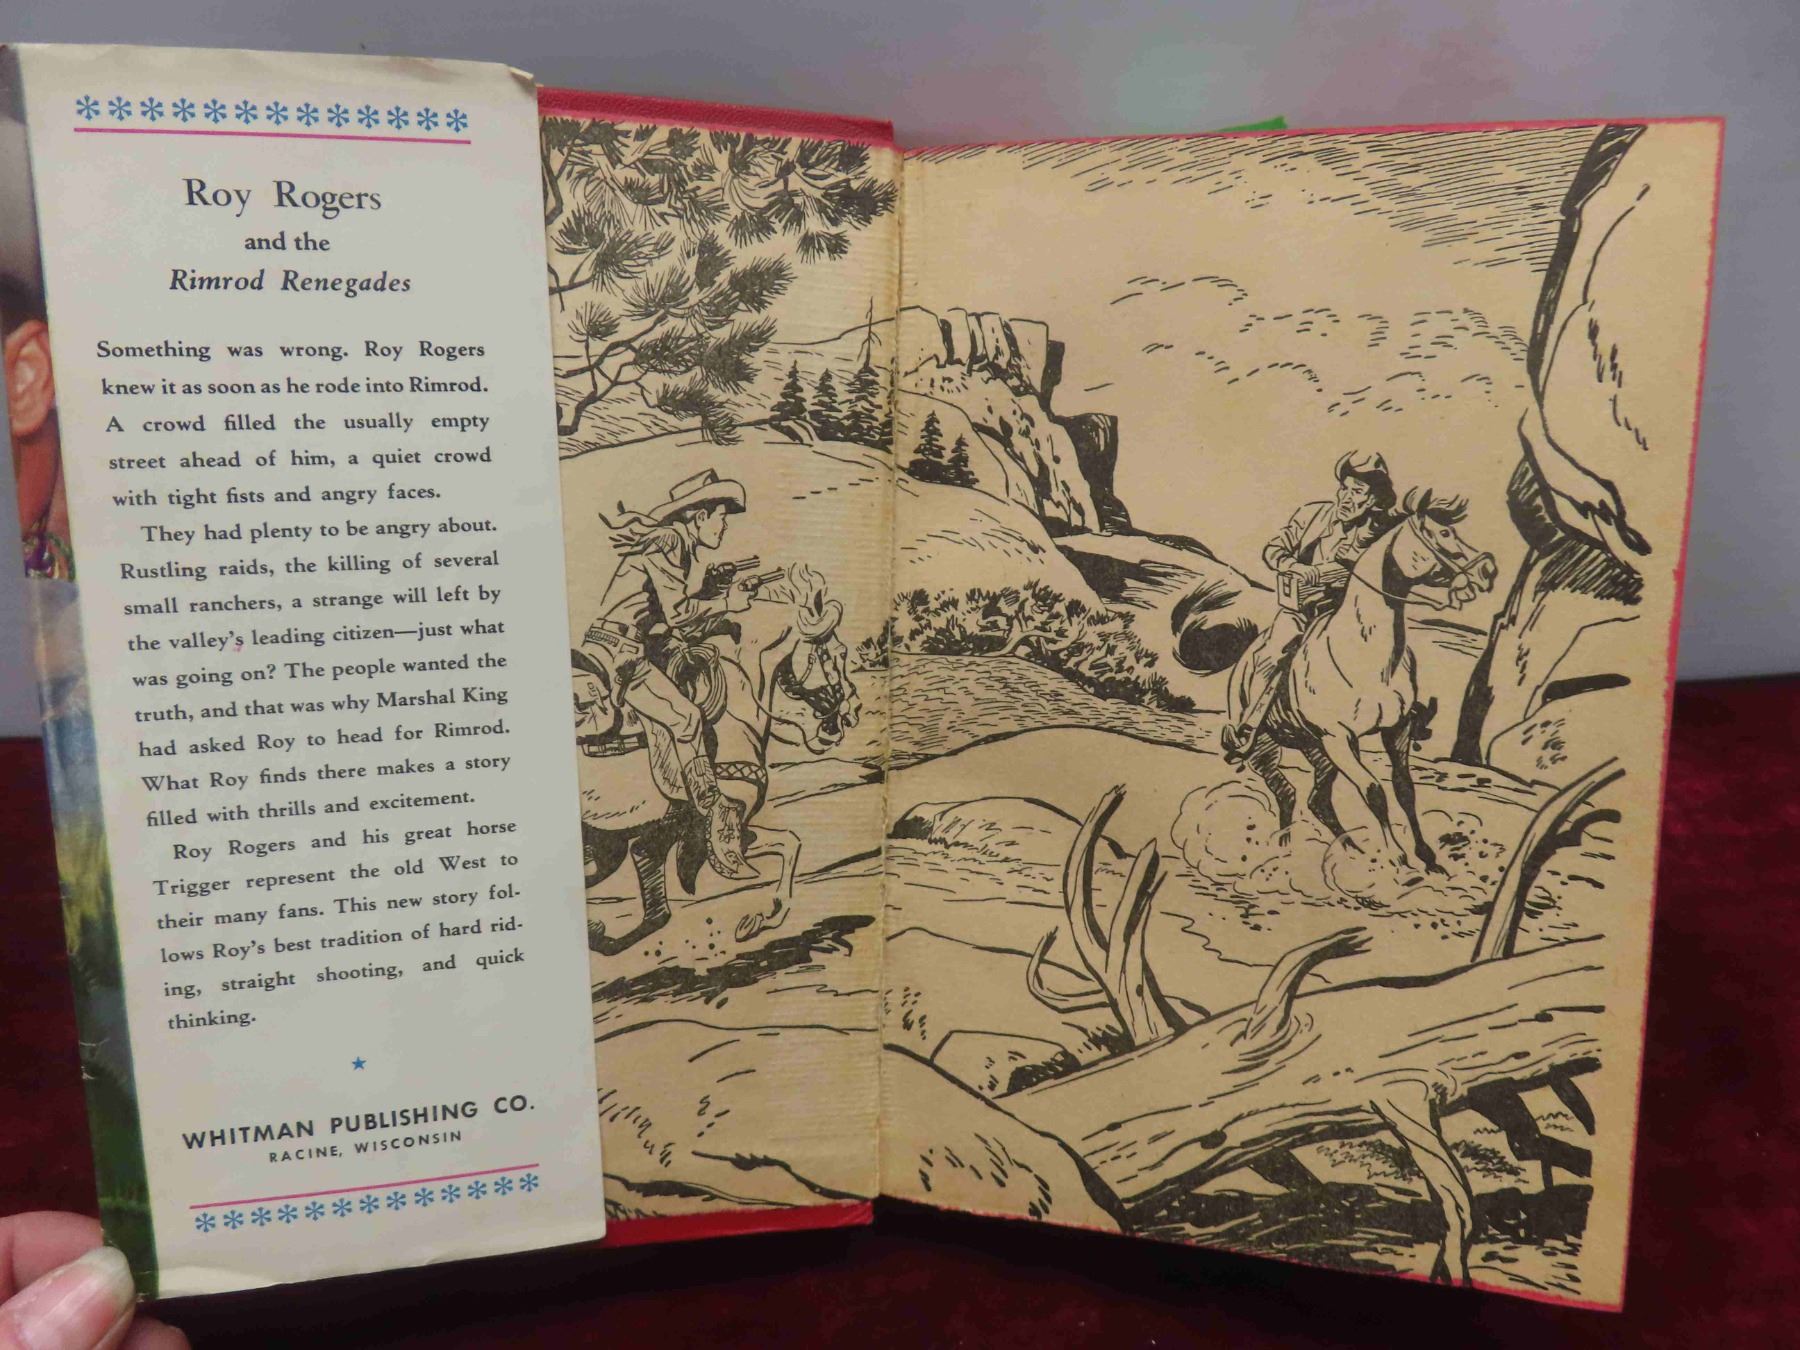 Roy Rogers
and the
Rimrod Renegades
Something was wrong. Roy Rogers
knew it as soon as he rode into Rimrod.
A crowd filled the usually empty
street ahead of him, a quiet crowd
with tight fists and angry faces.
They had plenty to be angry about.
Rustling raids, the killing of several
small ranchers, a strange will left by
the valley's leading citizen—just what
was going on? The people wanted the
truth, and that was why Marshal King
had asked Roy to head for Rimrod.
What Roy finds there makes a story
filled with thrills and excitement.
Roy Rogers and his great horse
Trigger represent the old West to
their many fans. This new story fol-
lows Roy's best tradition of hard rid-
ing, straight shooting, and quick
thinking.
WHITMAN PUBLISHING CO.
RACINE, WISCONSIN